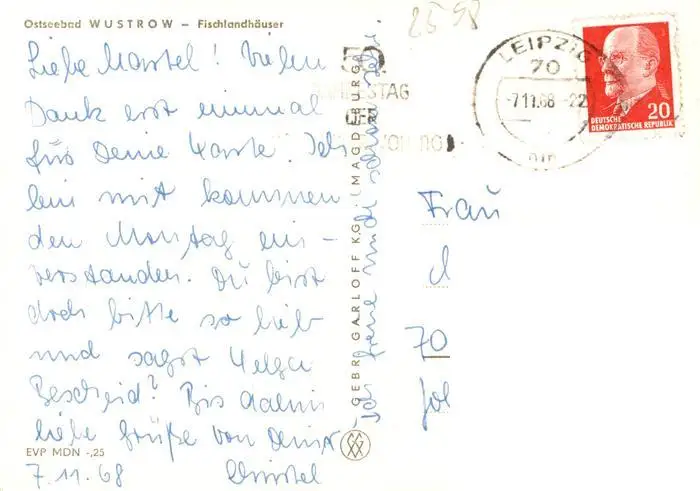 Ostseebad WUSTROW – Fischlandhäuser
Liebe Martel! Vielen
Dank erst einmal
für Deine Karte. Ich
bin mit kommen
den Montag ein-
verstanden. Du bist
doch bitte so lieb
und sagst Helga
Bescheid? Bis dahin
liebe Grüße von Deiner
Christel
7.11.68
EVP MDN -,25
Ich freue mich schon sehr.
GEBR. GARLOFF K.G., MAGDEBURG
25 98
LEIPZIG
70
-7.11.68 -22
TAG
DEUTSCHE
DEMOKRATISCHE REPUBLIK
20
Frau
70